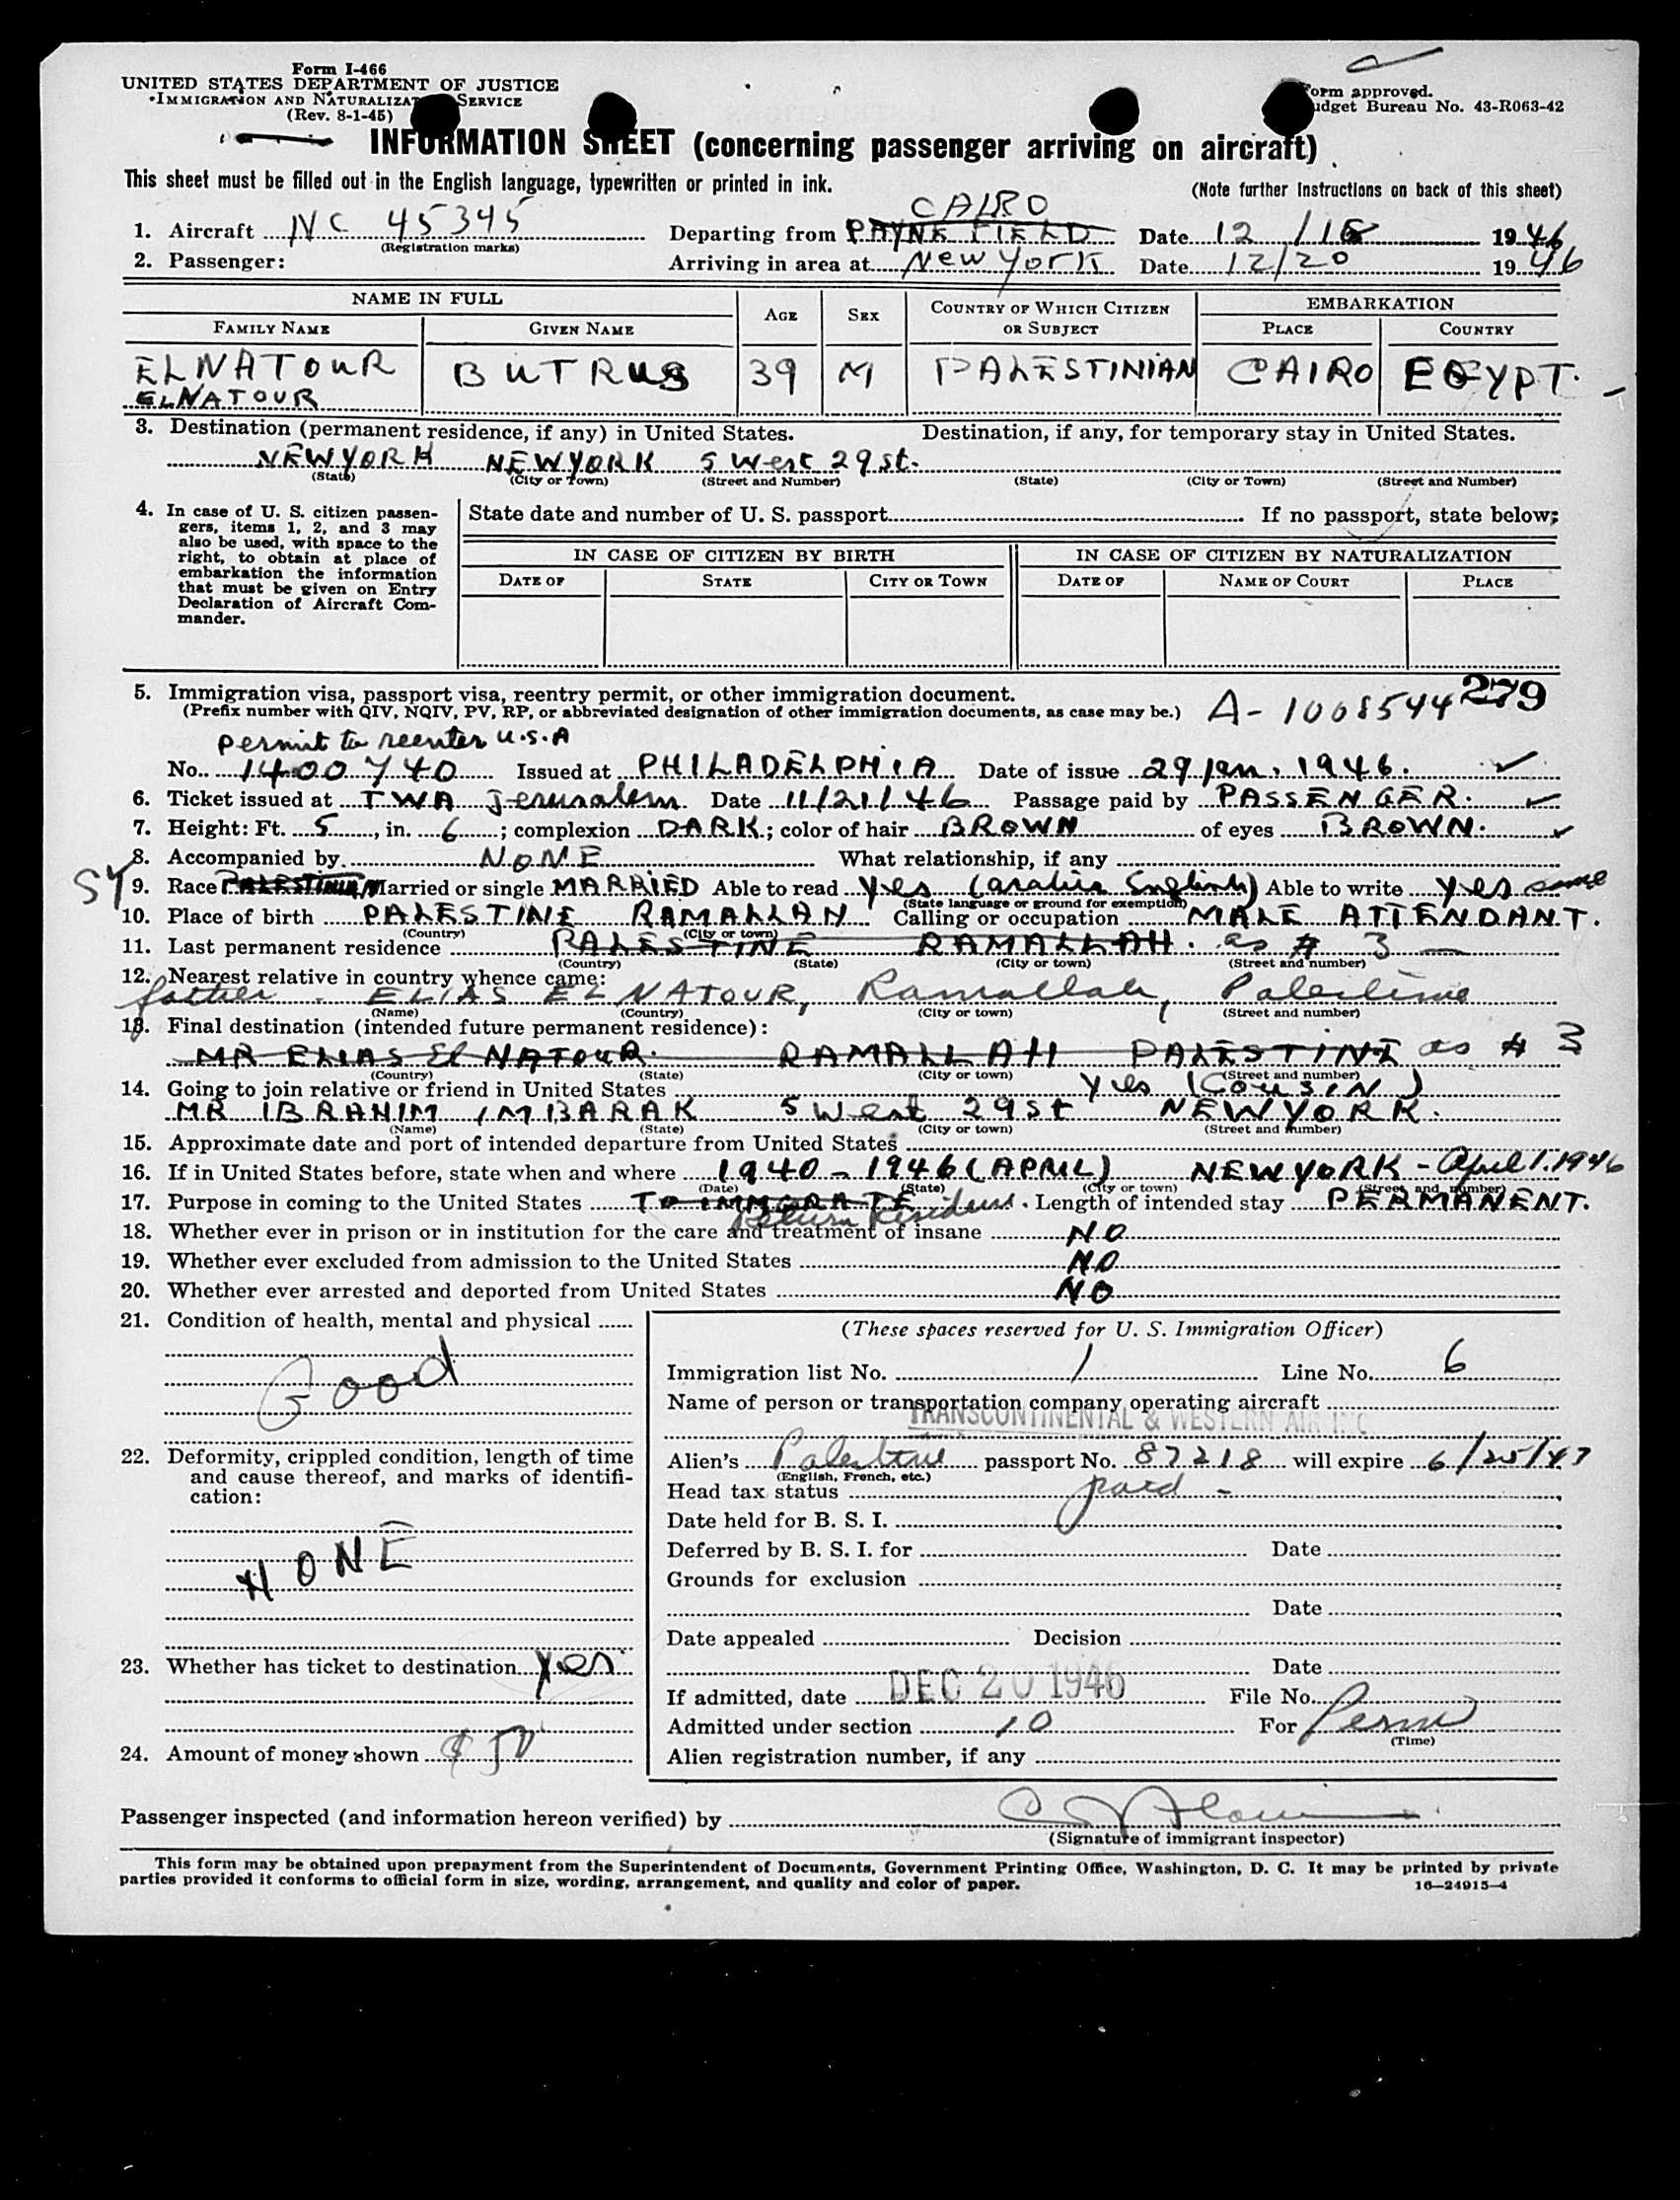 Form I-466
UNITED STATES DEPARTMENT OF JUSTICE
IMMIGRATION AND NATURALIZAT SERVICE
(Rev. 8-1-45)
orm approved.
udget Bureau No. 43-R063-42
INFORMATION SHEET (concerning passenger arriving on aircraft)
This sheet must be filled out in the English language, typewritten or printed in ink.
(Note further instructions on back of this sheet)
CAIRO
1. Aircraft NC 45345 Departing from PAYNE FIELD Date 12/18 1946
(Registration marks)
2. Passenger: Arriving in area at New York Date 12/20 1946
NAME IN FULL AGE SEX COUNTRY OF WHICH CITIZEN OR SUBJECT EMBARKATION
FAMILY NAME GIVEN NAME PLACE COUNTRY
ELNATOUR BUTRUS 39 M PALESTINIAN CAIRO EGYPT.
ELNATOUR
3. Destination (permanent residence, if any) in United States. Destination, if any, for temporary stay in United States.
NEWYORK NEWYORK 5 West 29 st.
(State) (City or Town) (Street and Number) (State) (City or Town) (Street and Number)
4. In case of U. S. citizen passen-
gers, items 1, 2, and 3 may
also be used, with space to the
right, to obtain at place of
embarkation the information
that must be given on Entry
Declaration of Aircraft Com-
mander.
State date and number of U. S. passport If no passport, state below:
IN CASE OF CITIZEN BY BIRTH IN CASE OF CITIZEN BY NATURALIZATION
DATE OF STATE CITY OR TOWN DATE OF NAME OF COURT PLACE
5. Immigration visa, passport visa, reentry permit, or other immigration document.
(Prefix number with QIV, NQIV, PV, RP, or abbreviated designation of other immigration documents, as case may be.) A-1008544 279
permit to reenter U.S.A
No. 1400740 Issued at PHILADELPHIA Date of issue 29 Jan. 1946.
6. Ticket issued at TWA Jerusalem Date 11/21/46 Passage paid by PASSENGER.
7. Height: Ft. 5, in. 6; complexion DARK; color of hair BROWN of eyes BROWN.
8. Accompanied by NONE What relationship, if any
SY 9. Race PALESTINIAN Married or single MARRIED Able to read Yes (arabic English) Able to write yes same
(State language or ground for exemption)
10. Place of birth PALESTINE RAMALLAH Calling or occupation MALE ATTENDANT.
(Country) (City or town)
11. Last permanent residence PALESTINE RAMALLAH. as # 3
(Country) (State) (City or town) (Street and number)
12. Nearest relative in country whence came:
father. ELIAS EL NATOUR, Ramallah, Palestine
(Name) (Country) (City or town) (Street and number)
13. Final destination (intended future permanent residence):
MR ELIAS El NATOUR. RAMALLAH PALESTINE as # 3
(Country) (State) (City or town) (Street and number)
14. Going to join relative or friend in United States yes (COUSIN)
MR IBRAHIM IMBARAK 5 West 29 St NEWYORK.
(Name) (State) (City or town) (Street and number)
15. Approximate date and port of intended departure from United States
16. If in United States before, state when and where 1940-1946 (APRIL) NEWYORK - April 1.1946
(Date) (State) (City or town) (Street and number)
17. Purpose in coming to the United States TO IMMGRATE Return Resident. Length of intended stay PERMANENT.
18. Whether ever in prison or in institution for the care and treatment of insane NO
19. Whether ever excluded from admission to the United States NO
20. Whether ever arrested and deported from United States NO
21. Condition of health, mental and physical
Good
22. Deformity, crippled condition, length of time
and cause thereof, and marks of identifi-
cation:
NONE
23. Whether has ticket to destination Yes
24. Amount of money shown $50
(These spaces reserved for U. S. Immigration Officer)
Immigration list No. 1 Line No. 6
Name of person or transportation company operating aircraft
TRANSCONTINENTAL & WESTERN AIR INC.
Alien's Palestine passport No. 87218 will expire 6/25/47
(English, French, etc.)
Head tax status paid -
Date held for B. S. I.
Deferred by B. S. I. for Date
Grounds for exclusion
Date
Date appealed Decision
Date
If admitted, date DEC 20 1946 File No.
Admitted under section 10 For Perm
(Time)
Alien registration number, if any
Passenger inspected (and information hereon verified) by
(Signature of immigrant inspector)
This form may be obtained upon prepayment from the Superintendent of Documents, Government Printing Office, Washington, D. C. It may be printed by private
parties provided it conforms to official form in size, wording, arrangement, and quality and color of paper.
16—24915-4